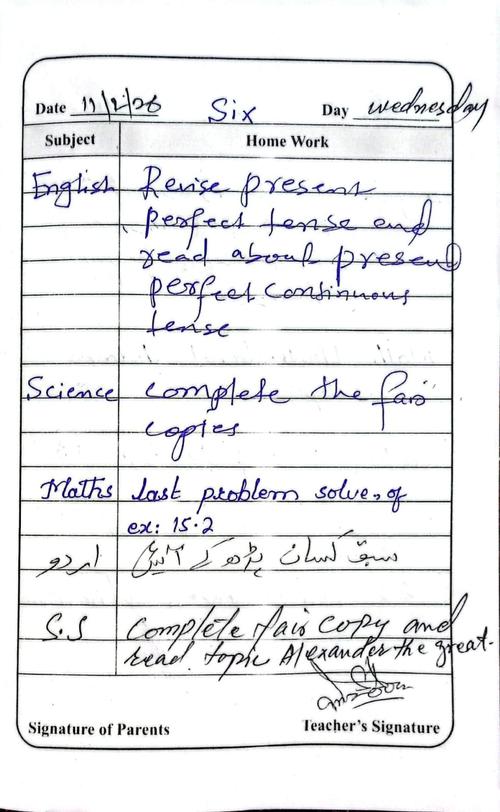 Date 11/2/26 Six Day wednesday
Subject Home Work
English Revise present
perfect tense and
read about present
perfect continuous
tense
Science complete the fair
copies
Maths last problem solve, of
ex: 15.2
اردو سبق کسان پڑھ کے آئیں
S.S Complete fair copy and
read topic Alexander the great.
Signature of Parents Teacher's Signature